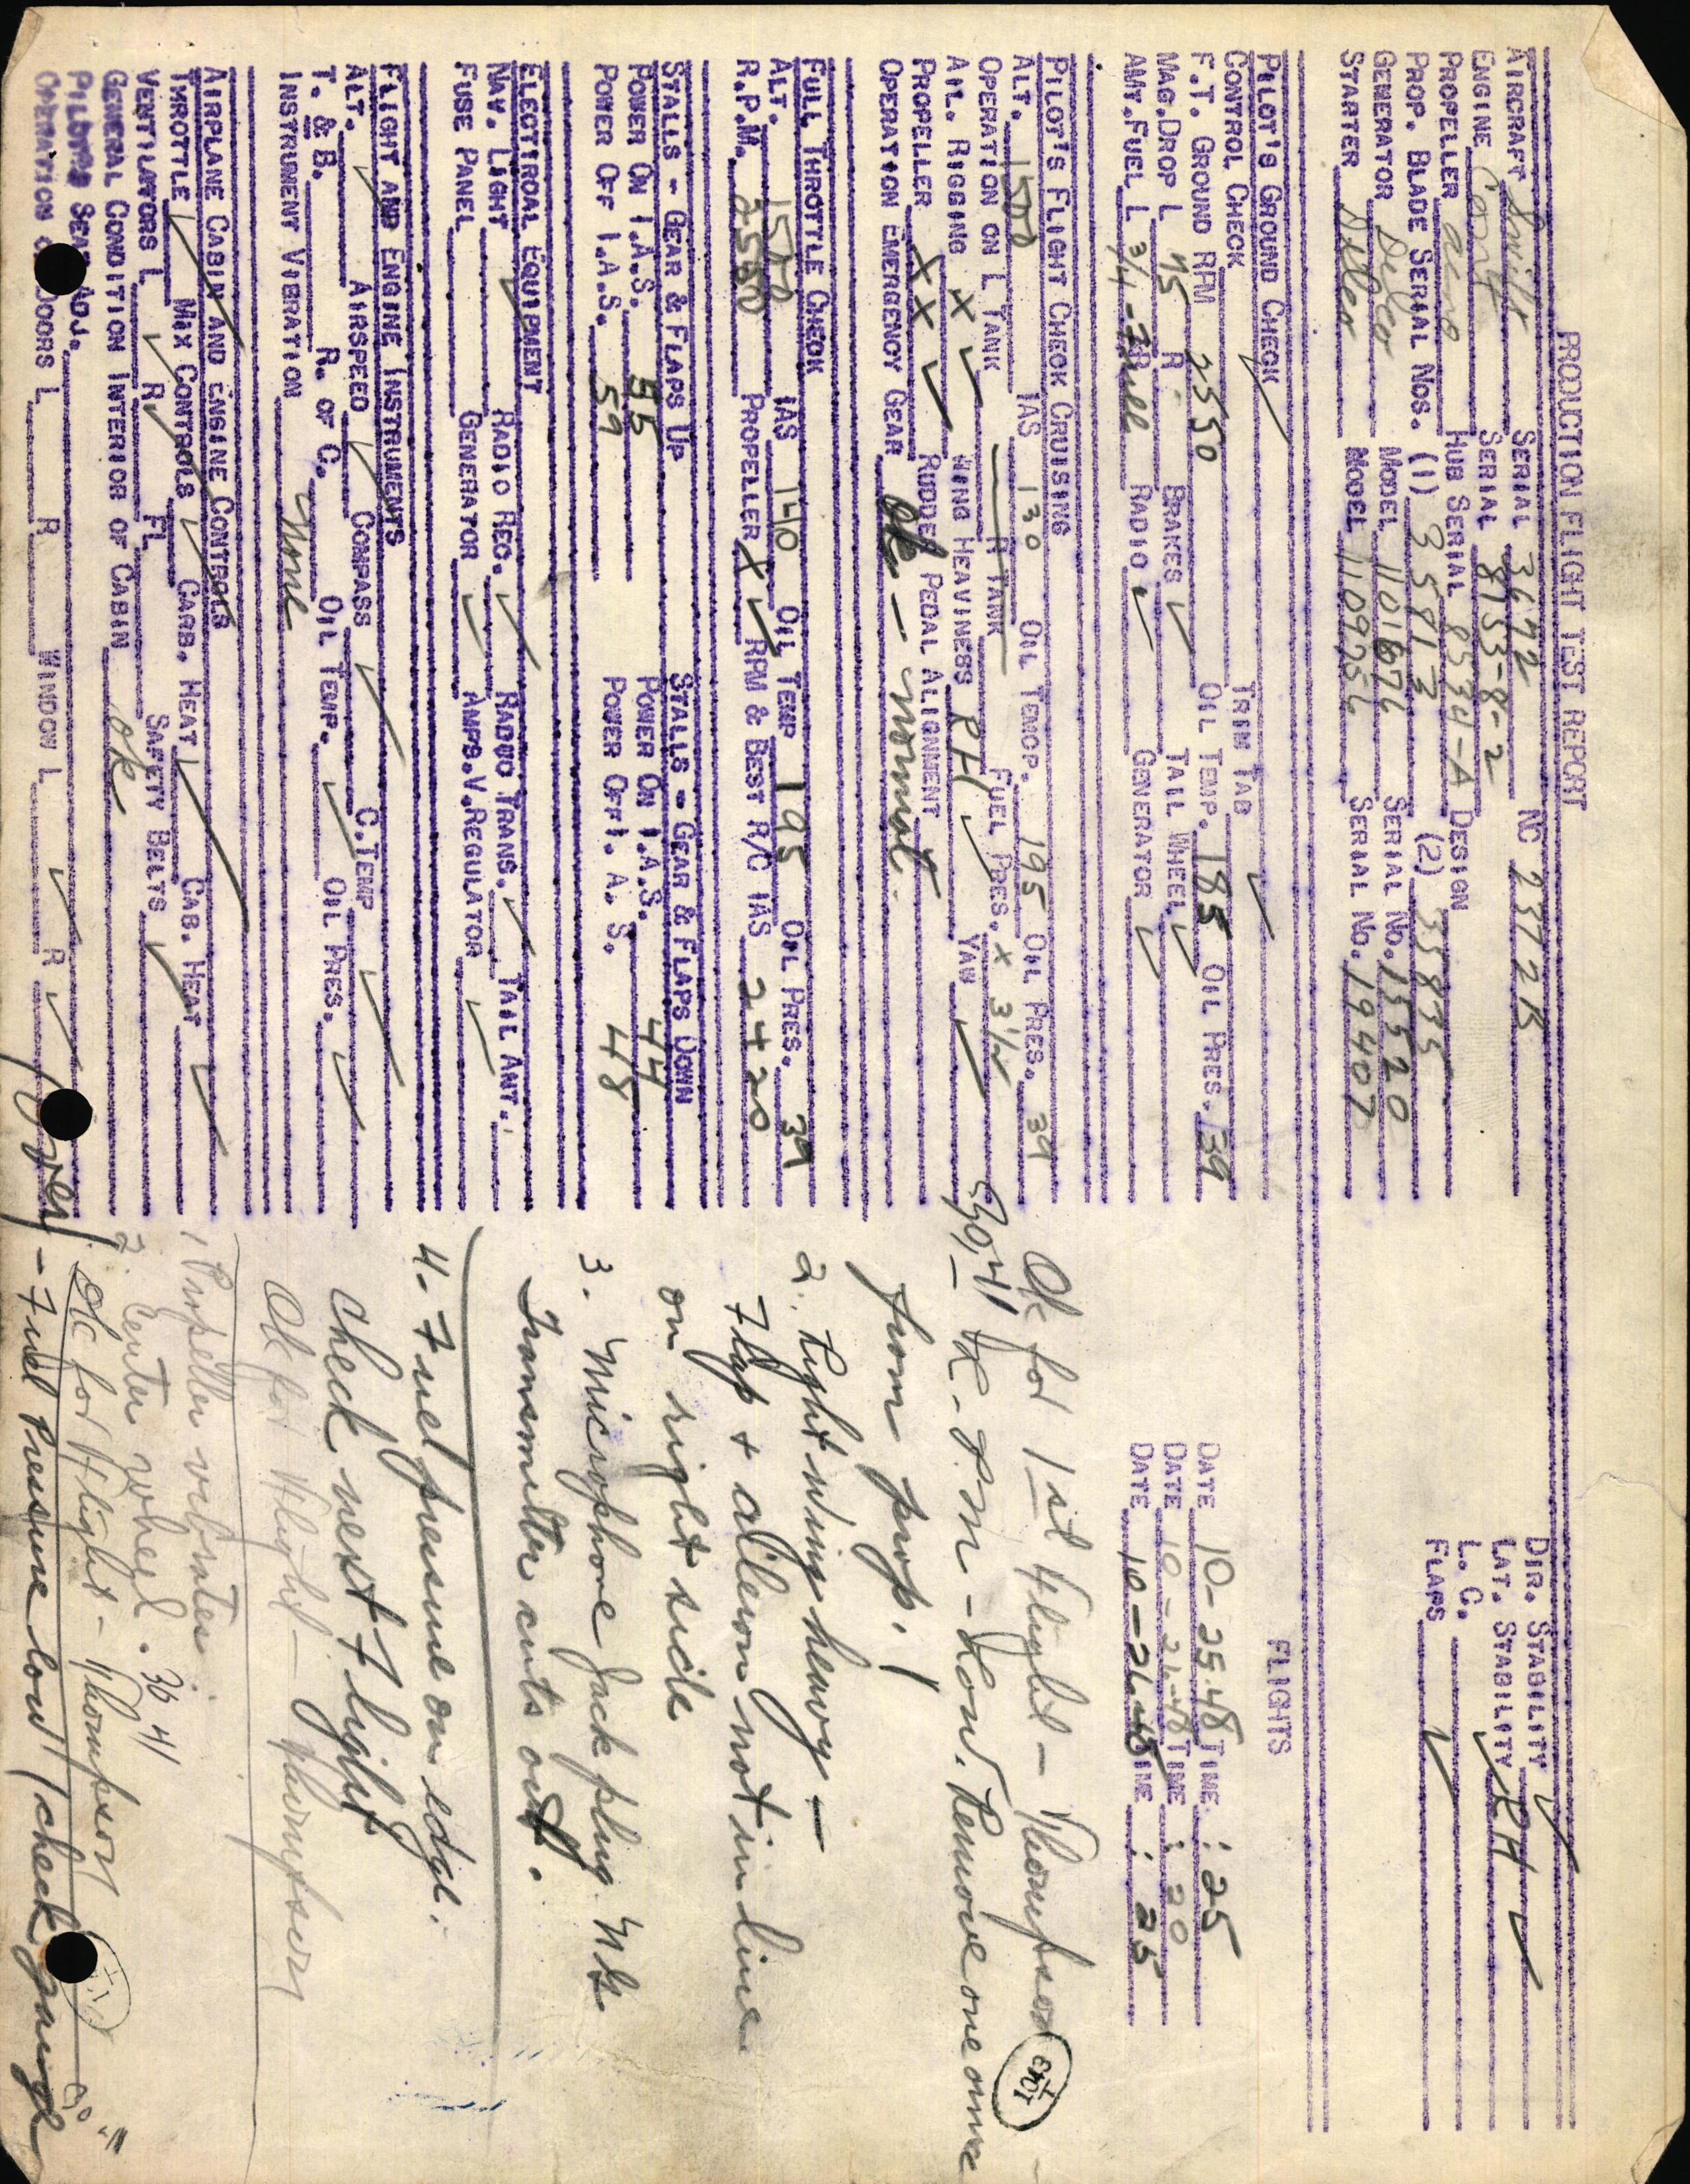 PRODUCTION FLIGHT TEST REPORT
AIRCRAFT Swift SERIAL 3672 NC 2372B
ENGINE Cont SERIAL 8733-8-2
PROPELLER HUB SERIAL 8534-A DESIGN
PROP. BLADE SERIAL NOS. (1) (2) 35835
GENERATOR Delco MODEL 1101676 SERIAL NO. 15520
STARTER Delco MODEL 1109656 SERIAL NO. 19407
DIR. STABILITY ✓
LAT. STABILITY ✓ RH ✓
L. G.
FLAPS ✓
PILOT'S GROUND CHECK ✓
CONTROL CHECK TRIM TAB ✓
F.T. GROUND RPM 2550 OIL TEMP. 185 OIL PRES. 39
MAG.DROP L 75 R BRAKES ✓ TAIL WHEEL ✓
AMT.FUEL L 3/4 - R Full RADIO ✓ GENERATOR ✓
FLIGHTS
DATE 10-25-48 TIME : 25
DATE 10-26-48 TIME : 20
DATE 10-26-48 TIME : 25
PILOT'S FLIGHT CHECK CRUISING
ALT. 1500 IAS 130 OIL TEMP. 195 OIL PRES. 39
OPERATION ON L TANK ✓ R TANK FUEL PRES. x 3 1/2
AIL. RIGGING X ✓ WING HEAVINESS RH ✓ YAW ✓
PROPELLER XX ✓ RUDDER PEDAL ALIGNMENT
OPERATION EMERGENCY GEAR ok - normal.
FULL THROTTLE CHECK
ALT. 1500 IAS 140 OIL TEMP 195 OIL PRES. 39
R.P.M. 2550 PROPELLER X ✓ RPM & BEST R/C IAS 2420
STALLS - GEAR & FLAPS UP STALLS - GEAR & FLAPS DOWN
POWER ON I.A.S. 55 POWER ON I.A.S. 44
POWER OFF I.A.S. 59 POWER OFF I.A.S. 48
ELECTRICAL EQUIPMENT
NAV. LIGHT ✓ RADIO REC. ✓ RADIO TRANS. ✓ TAIL ANT.
FUSE PANEL GENERATOR ✓ AMPS.V.REGULATOR ✓
FLIGHT AND ENGINE INSTRUMENTS
ALT. ✓ AIRSPEED ✓ COMPASS ✓ C.TEMP ✓
T. & B. R. OF C. OIL TEMP. ✓ OIL PRES. ✓
INSTRUMENT VIBRATION None
AIRPLANE CABIN AND ENGINE CONTROLS
THROTTLE ✓ MIX CONTROLS ✓ CARB. HEAT ✓ CAB. HEAT ✓
VENTILATORS L ✓ R ✓ FL SAFETY BELTS ✓
GENERAL CONDITION INTERIOR OF CABIN ok
PILOTS SEAT ADJ.
OPERATION OF DOORS L R WINDOW L ✓ R ✓
Ok for 1st Flight - Thompson
R.P.M - Low. Remove one ounce
from prop. 1
2. Right wing heavy -
Flap + aileron not in line
on right side
3. Microphone Jack plug NG
Transmitter cuts out.
4. Fuel pressure on edge.
Check next flight
Ok for Flight - Thompson
1 Propeller vibrates.
2. Center wheel. 36 41
OK for Flight - Thompson
- Fuel Pressure low / check gauge